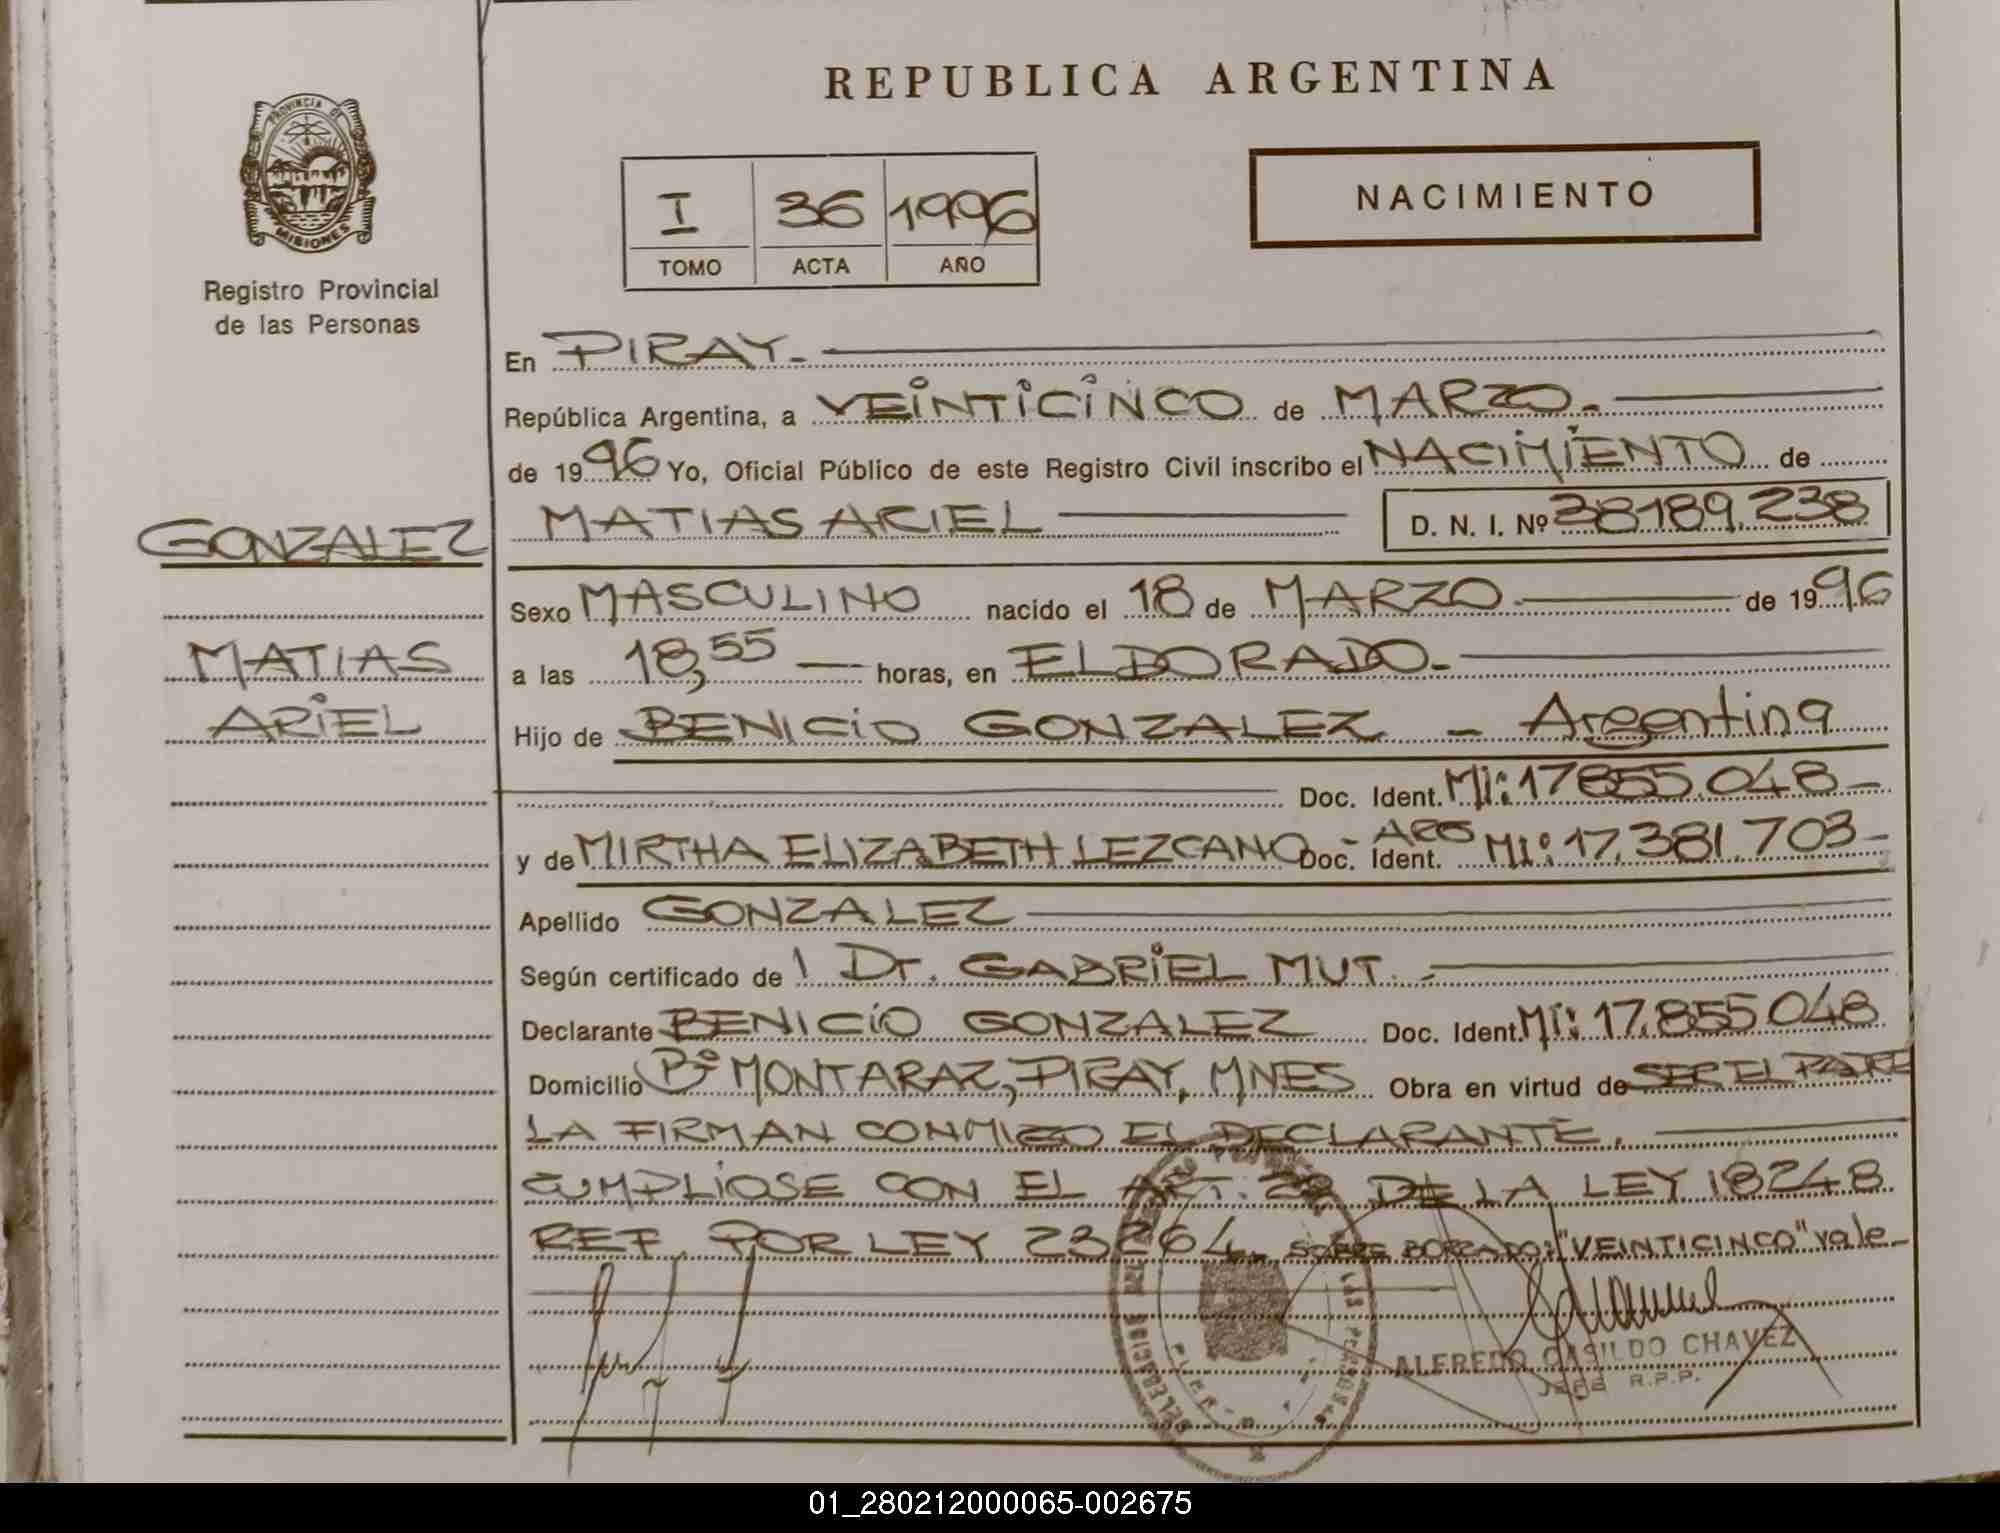 REPUBLICA ARGENTINA
PROVINCIA DE
MISIONES
Registro Provincial
de las Personas
I 36 1996
TOMO ACTA AÑO
NACIMIENTO
En PIRAY.-
República Argentina, a VEINTICINCO de MARZO.-
de 1996 Yo, Oficial Público de este Registro Civil inscribo el NACIMIENTO de
GONZALEZ
MATIAS
ARIEL
MATIAS ARIEL D. N. I. Nº 38189.238
Sexo MASCULINO nacido el 18 de MARZO. de 1996
a las 18,55 horas, en ELDORADO.-
Hijo de BENICIO GONZALEZ - Argentina
Doc. Ident. MI: 17855.048-
y de MIRTHA ELIZABETH LEZCANO - ARG Doc. Ident. MI: 17.381.703-
Apellido GONZALEZ
Según certificado de Dr. GABRIEL MUT.-
Declarante BENICIO GONZALEZ Doc. Ident. MI: 17.855048
Domicilio Bº MONTARAZ, PIRAY, MNES Obra en virtud de SER EL PADRE
LA FIRMAN CONMIGO EL DECLARANTE.
CUMPLIOSE CON EL ART. DE LA LEY 18248
REF. POR LEY 23264. SOBRE BORRADO: "VEINTICINCO" vale-
ALFREDO CASILDO CHAVEZ
JEFE R.P.P.
01_280212000065-002675